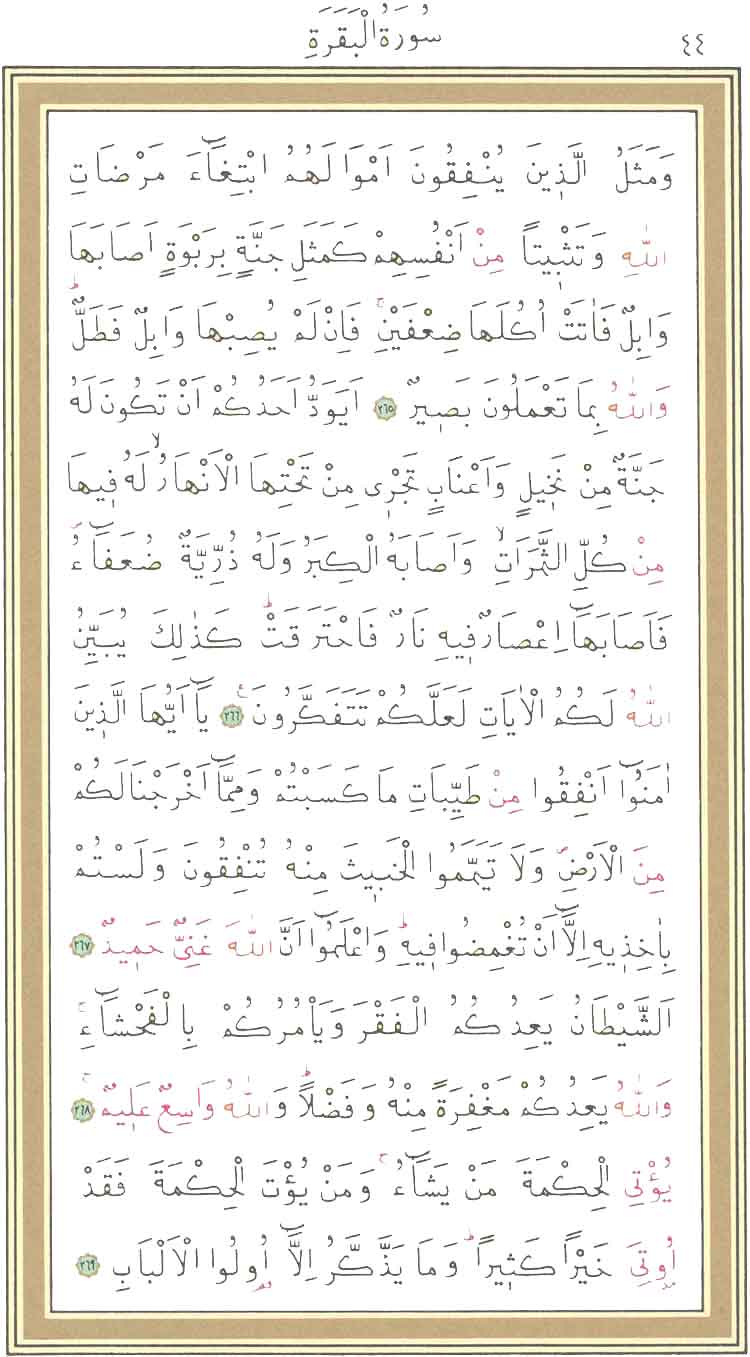 سُورَةُ الْبَقَرَةِ ٤٤
وَمَثَلُ الَّذ۪ينَ يُنْفِقُونَ اَمْوَالَهُمُ ابْتِغَٓاءَ مَرْضَاتِ
اللّٰهِ وَتَثْب۪يتاً مِنْ اَنْفُسِهِمْ كَمَثَلِ جَنَّةٍ بِرَبْوَةٍ اَصَابَهَا
وَابِلٌ فَاٰتَتْ اُكُلَهَا ضِعْفَيْنِۚ فَاِنْ لَمْ يُصِبْهَا وَابِلٌ فَطَلٌّۜ
وَاللّٰهُ بِمَا تَعْمَلُونَ بَص۪يرٌ ﴿٢٦٥﴾ اَيَوَدُّ اَحَدُكُمْ اَنْ تَكُونَ لَهُ
جَنَّةٌ مِنْ نَخ۪يلٍ وَاَعْنَابٍ تَجْر۪ي مِنْ تَحْتِهَا الْاَنْهَارُۙ لَهُ ف۪يهَا
مِنْ كُلِّ الثَّمَرَاتِۙ وَاَصَابَهُ الْكِبَرُ وَلَهُ ذُرِّيَّةٌ ضُعَفَٓاءُۖ
فَاَصَابَهَٓا اِعْصَارٌ ف۪يهِ نَارٌ فَاحْتَرَقَتْۜ كَذٰلِكَ يُبَيِّنُ
اللّٰهُ لَكُمُ الْاٰيَاتِ لَعَلَّكُمْ تَتَفَكَّرُونَ۟ ﴿٢٦٦﴾ يَٓا اَيُّهَا الَّذ۪ينَ
اٰمَنُٓوا اَنْفِقُوا مِنْ طَيِّبَاتِ مَا كَسَبْتُمْ وَمِمَّٓا اَخْرَجْنَا لَكُمْ
مِنَ الْاَرْضِۖ وَلَا تَيَمَّمُوا الْخَب۪يثَ مِنْهُ تُنْفِقُونَ وَلَسْتُمْ
بِاٰخِذ۪يهِ اِلَّٓا اَنْ تُغْمِضُوا ف۪يهِۜ وَاعْلَمُٓوا اَنَّ اللّٰهَ غَنِيٌّ حَم۪يدٌ ﴿٢٦٧﴾
اَلشَّيْطَانُ يَعِدُكُمُ الْفَقْرَ وَيَأْمُرُكُمْ بِالْفَحْشَٓاءِۚ
وَاللّٰهُ يَعِدُكُمْ مَغْفِرَةً مِنْهُ وَفَضْلاًۜ وَاللّٰهُ وَاسِعٌ عَل۪يمٌۚ ﴿٢٦٨﴾
يُؤْتِي الْحِكْمَةَ مَنْ يَشَٓاءُۚ وَمَنْ يُؤْتَ الْحِكْمَةَ فَقَدْ
اُو۫تِيَ خَيْراً كَث۪يراًۜ وَمَا يَذَّكَّرُ اِلَّٓا اُو۬لُوا الْاَلْبَابِ ﴿٢٦٩﴾